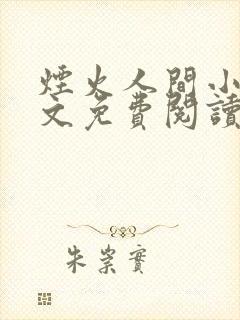 煙火人間小
文免費閱讀
朱崇實